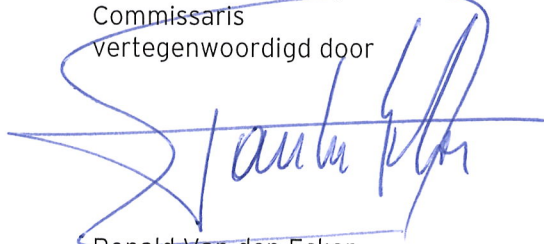 Commissaris
vertegenwoordigd door
Ronald Van den Ecker